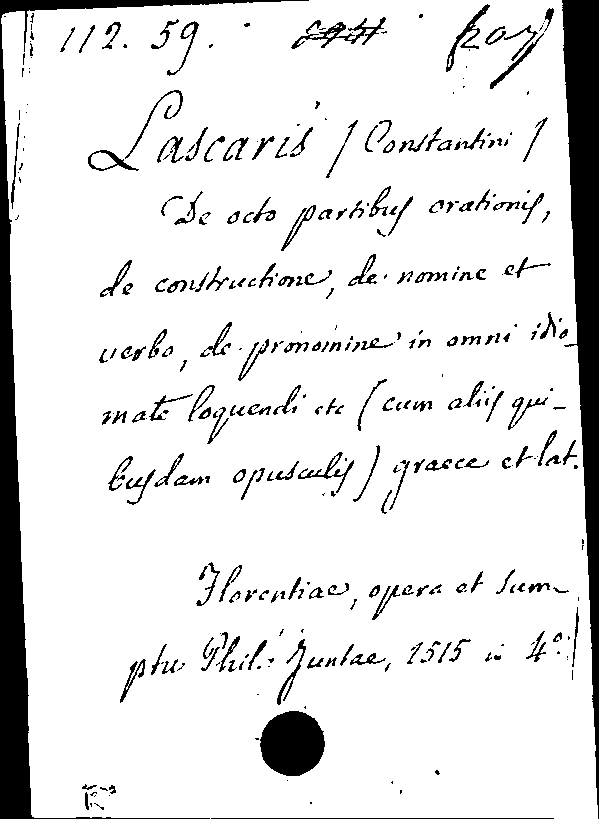 112. 59.
Lascaris / Constantini /
De octo partibus orationis,
de constructione, de nomine et
verbo, de pronomine in omni idio-
mate loquendi etc (cum aliis qui-
busdam opusculis) graece et lat.
Florentiae, opera et sum-
ptu Phil. Juntae, 1515 in 4º.